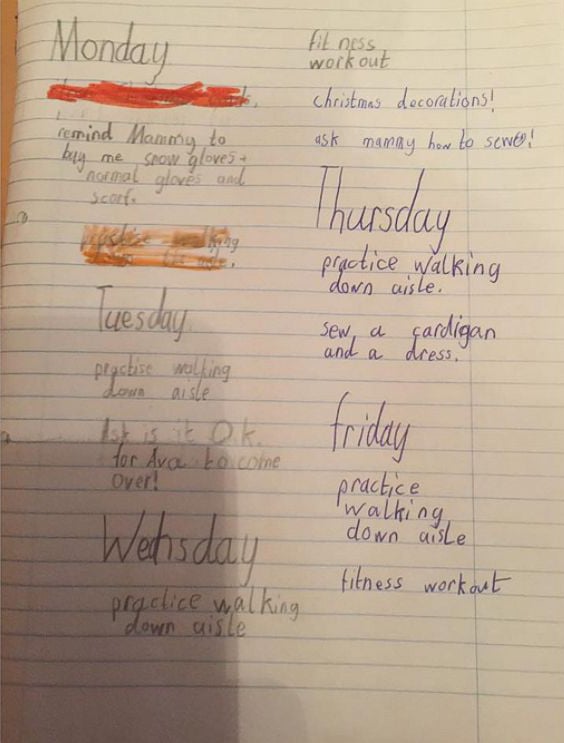 Monday
remind Mammy to
buy me snow gloves +
normal gloves and
scarf.
practise walking
down aisle.
Tuesday
practise walking
down aisle
Ask is it O.k.
for Ava to come
over!
Wednsday
practice walking
down aisle
fitness
workout
christmas decorations!
ask mammy how to sew!
Thursday
practice walking
down aisle.
sew a cardigan
and a dress.
friday
practice
walking
down aisle
fitness workout